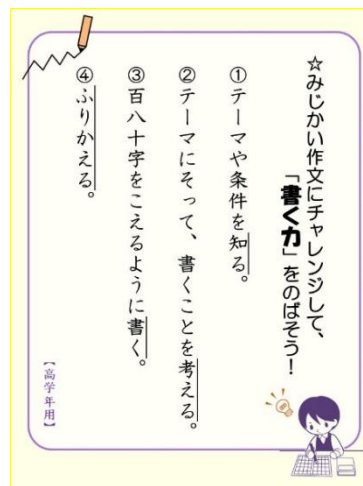 ☆みじかい作文にチャレンジして、
「書く力」をのばそう！
①テーマや条件を知る。
②テーマにそって、書くことを考える。
③百八十字をこえるように書く。
④ふりかえる。
【高学年用】